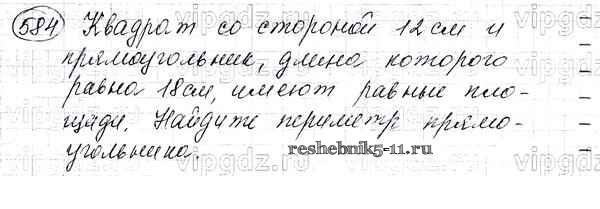 584 Квадрат со стороной 12 см и
прямоугольник, длина которого
равна 18 см, имеют равные пло-
щади. Найдите периметр прямо-
угольника.
reshebnik5-11.ru
vipgdz.ru